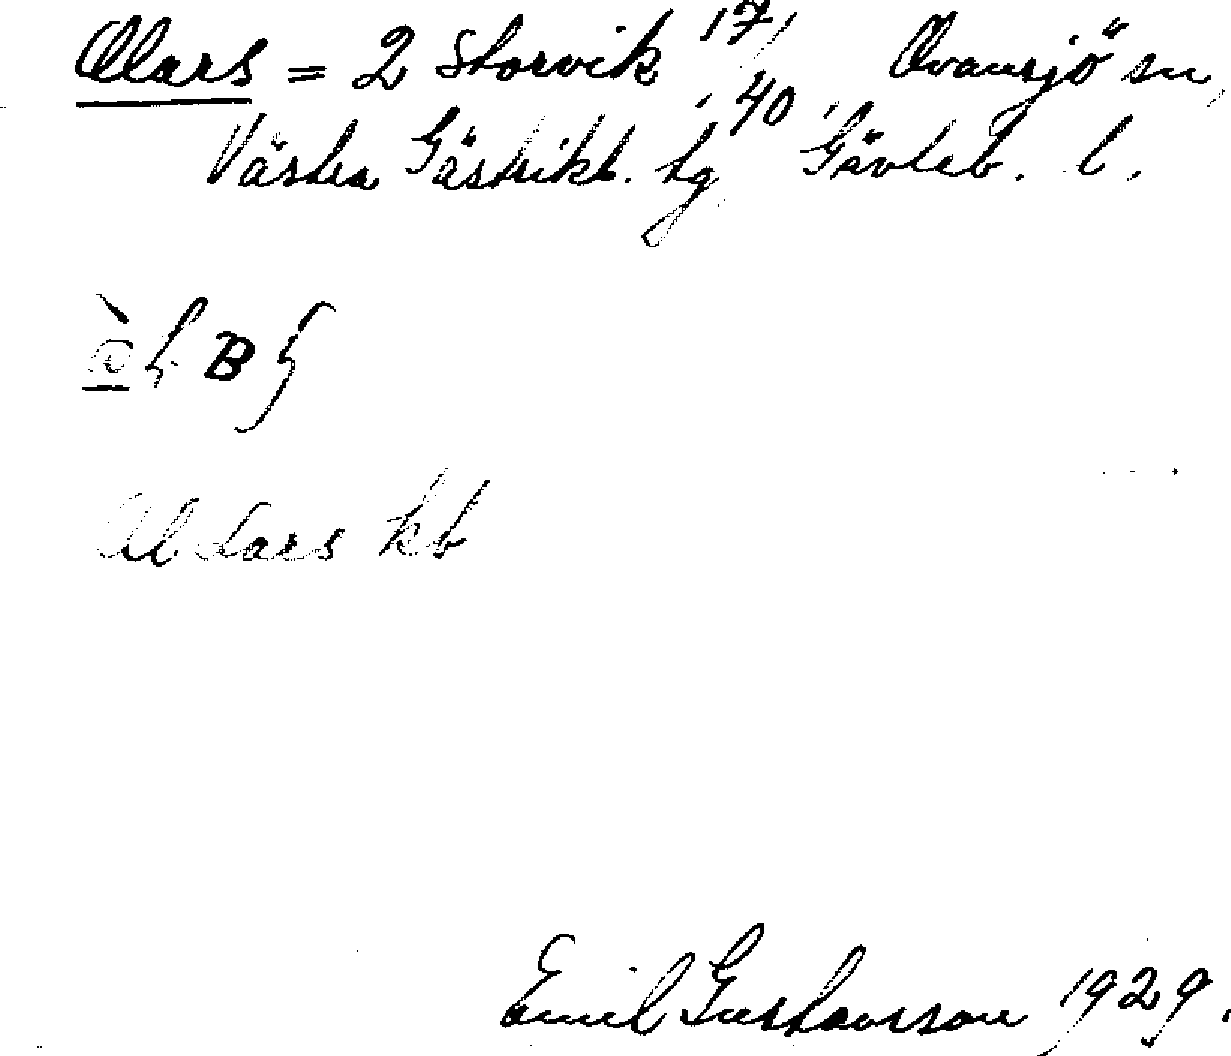 Ollars = 2 Storvik 17/40, Ovansjö sn,
Västra Gästrikl. tg Gävleb. l.
Ol Lars kb
Emil Gustavsson 1929.